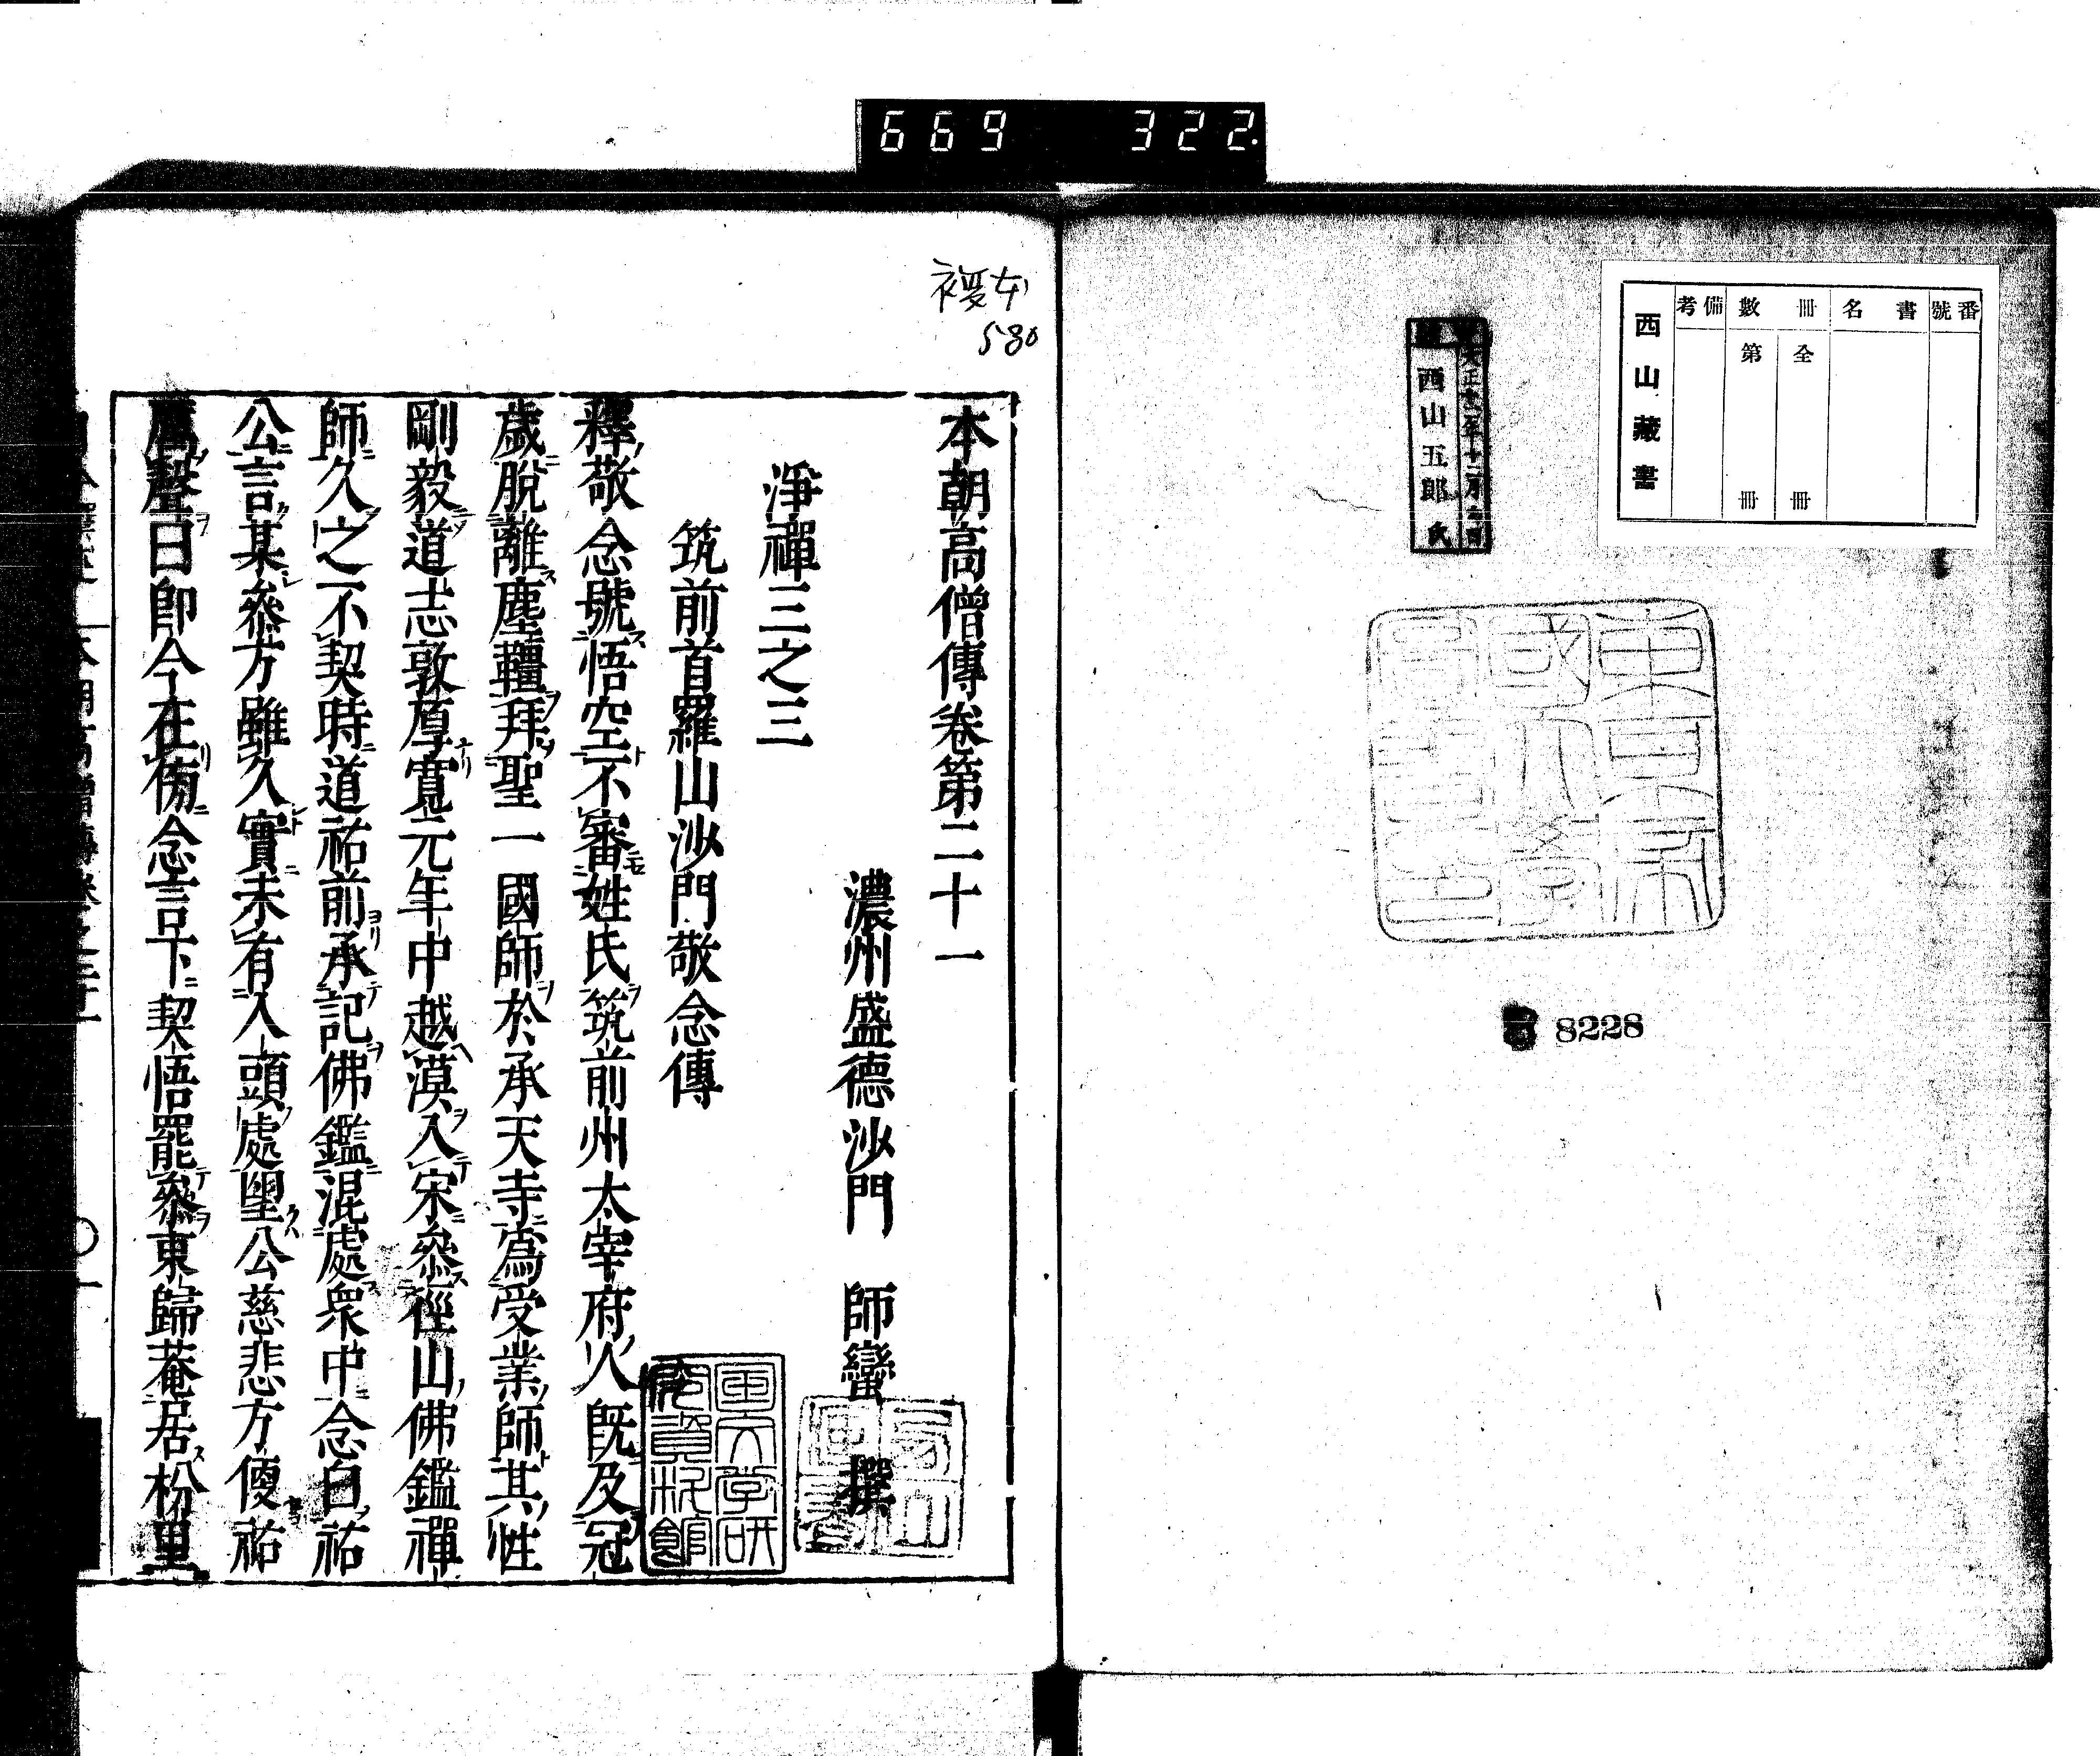 669 322
番號
書名
冊數
全 冊
第 冊
備考
西山藏書
大正十二年十二月
西山五郎氏
8228
複本
580
本朝高僧傳卷第二十一
濃州盛德沙門 師蠻 撰
淨禪三之三
筑前首羅山沙門敬念傳
釋敬念號悟空不審姓氏筑前州太宰府人既及冠
歲脫離塵韁拜聖一國師於承天寺爲受業師其性
剛毅道志敦厚寬元年中越漠入宋參徑山佛鑑禪
師久之不契時道祐前承記佛鑑混處衆中念白祐
公言某參方雖久實未有入頭處望公慈悲方便祐
厲聲曰即今在甚處念言下契悟罷參東歸菴居枌里
國文学研究資料館